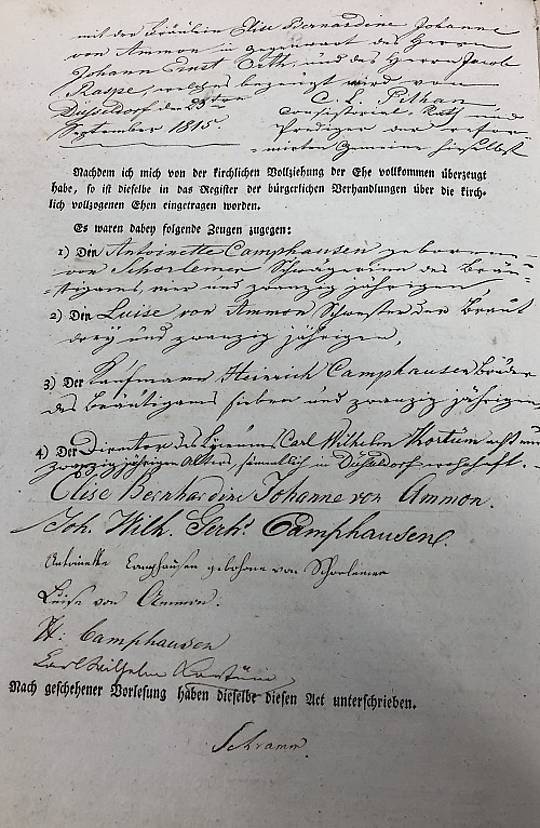 mit der Fräulein Elise Bernardine Johanne
von Ammon in Gegenwart des Herrn
Johann Ernst und des Herrn Jacob
Raspe, welches bezeugt wird von
Düsseldorf den 23ten C. L. Pithan
September 1815. Consistorial-Rath und
Prediger der refor-
mirten Gemeine hieselbst
Nachdem ich mich von der kirchlichen Vollziehung der Ehe vollkommen überzeugt
habe, so ist dieselbe in das Register der bürgerlichen Verhandlungen über die kirch-
lich vollzogenen Ehen eingetragen worden.
Es waren dabey folgende Zeugen zugegen:
1) Die Antoinette Camphausen geborene
von Schorlemer Schwägerinn des Bräu-
tigams, vier und zwanzig jährigen,
2) Die Luise von Ammon Schwester der Braut
drey und zwanzig jährigen,
3) Der Kaufmann Heinrich Camphausen Bruder
des Bräutigams sieben und zwanzig jährigen
4) Der Director des Lyceums Carl Wilhelm Kortüm acht und
zwanzig jährigen Alters, sämmtlich in Düsseldorf wohnhaft.
Elise Bernhardine Johanne von Ammon.
Joh. Wilh. Gerh. Camphausen.
Antoinette Camphausen gebohrne von Schorlemer
Luise von Ammon.
H: Camphausen
Carl Wilhelm Kortüm
Nach geschehener Vorlesung haben dieselbe diesen Act unterschrieben.
Schramm.